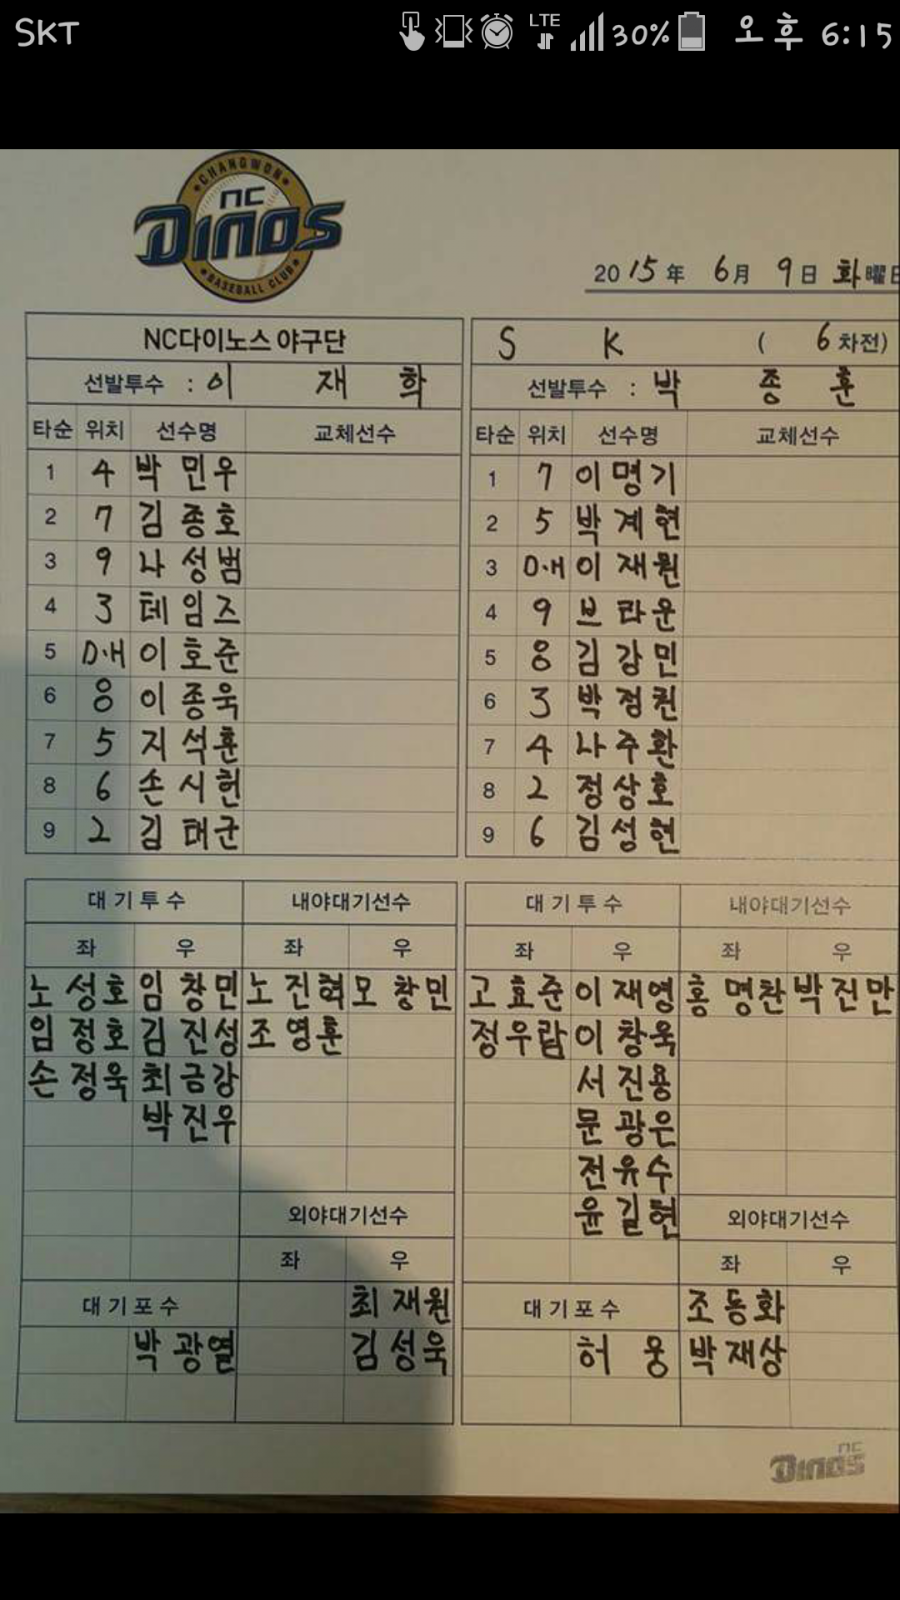 SKT LTE 30% 오후 6:15
CHANGWON
NC
DINOS
BASEBALL CLUB
2015年 6月 9日 화曜日
NC다이노스 야구단
선발투수 : 이 재 학
타순 위치 선수명 교체선수
1 4 박민우
2 7 김종호
3 9 나성범
4 3 테임즈
5 D·H 이호준
6 8 이종욱
7 5 지석훈
8 6 손시헌
9 2 김태군
S K ( 6차전)
선발투수 : 박 종 훈
타순 위치 선수명 교체선수
1 7 이명기
2 5 박계현
3 D·H 이재원
4 9 브라운
5 8 김강민
6 3 박정권
7 4 나주환
8 2 정상호
9 6 김성현
대기투수 내야대기선수
좌 우 좌 우
노성호 임창민 노진혁 모창민
임정호 김진성 조영훈
손정욱 최금강
박진우
외야대기선수
좌 우
대기포수 최재원
박광열 김성욱
대기투수 내야대기선수
좌 우 좌 우
고효준 이재영 홍명찬 박진만
정우람 이창욱
서진용
문광은
전유수
윤길현 외야대기선수
좌 우
대기포수 조동화
허웅 박재상
NC
DINOS